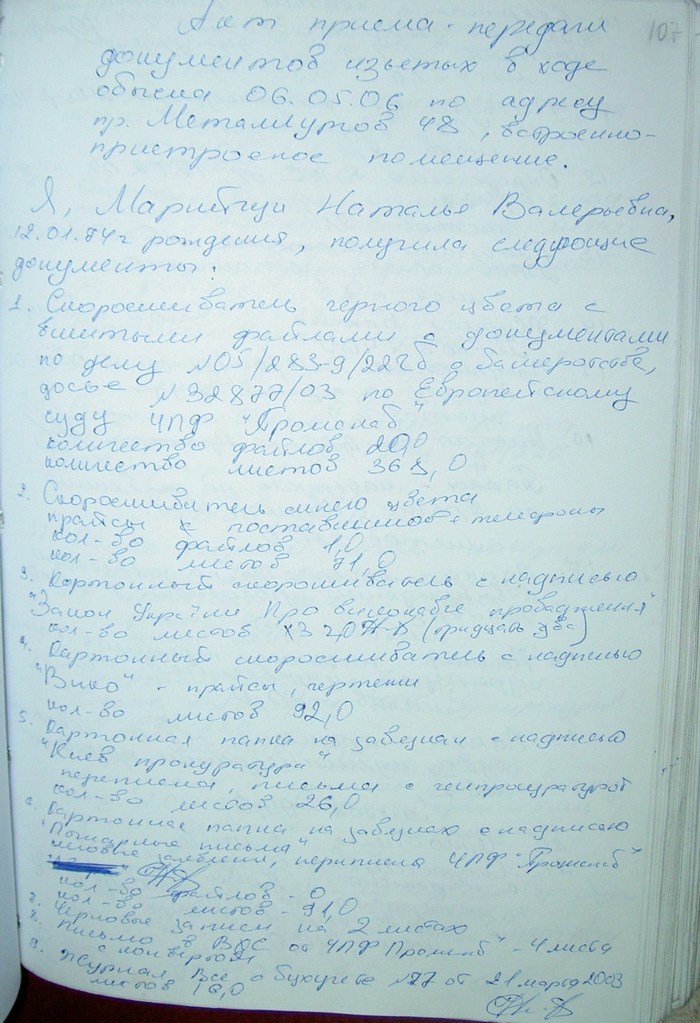 107
Акт приема-передачи
документов изъетых в ходе
обыска 06.05.06 по адресу
пр. Металлургов 48, встроенно-
пристроеное помещение.
Я, Наталья Валерьевна,
12.01.74 г рождения, получила следующие
документы:
1. Скоросшиватель черного цвета с
вшитыми файлами с документами
по делу №05/283-9/2226 о банкротстве,
досье №32877/03 по Европейскому
суду ЧПФ "Промснаб"
количество файлов 20,0
количество листов 368,0
2. Скоросшиватель синего цвета
прайсы к поставщиков + телефоны
кол-во файлов 1,0
кол-во листов 71,0
3. Картонный скоросшиватель с надписью
"Закон України Про виконавче провадження"
кол-во листов (тридцать два)
4. Картонный скоросшиватель с надписью
"Вико" - прайсы, чертежи
кол-во листов 92,0
5. Картонная папка на завезках с надписью
"Киев прокуратура"
переписка, письма с генпрокуратурой
кол-во листов 26,0
6. Картонная папка на завезках с надписью
письма"
исковые заявления, переписка ЧПФ "Промснаб"
кол-во файлов - 0
кол-во листов - 91,0
7. Черновые записи на 2 листах
8. Письмо в ВДС от ЧПФ Промснаб" - 4 листа
с конвертом
9. Журнал Все о бухучете №27 от 21 марта 2003
листов